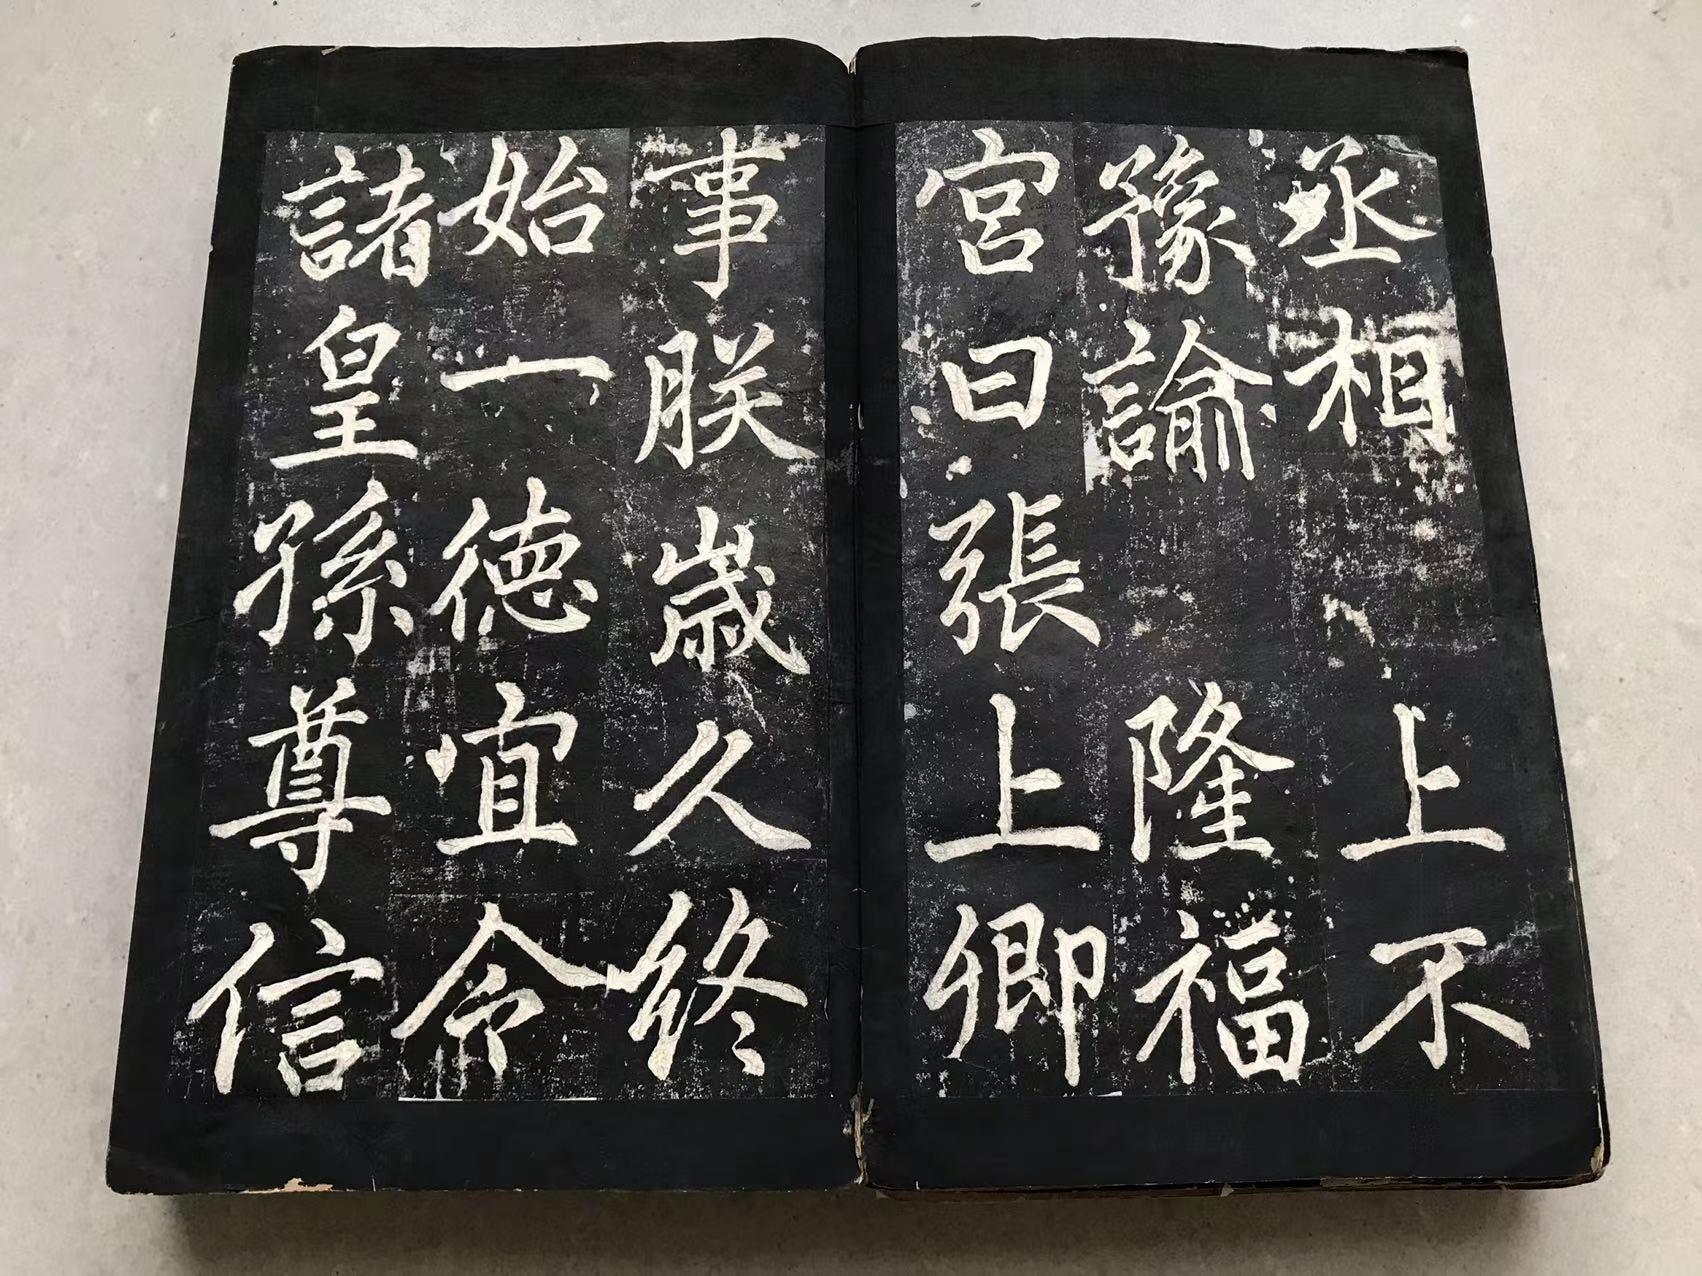 丞相上不
豫諭隆福
宮曰張上卿
事朕歲久終
始一德宜令
諸皇孫尊信